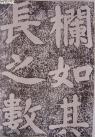 欄如其
長之數